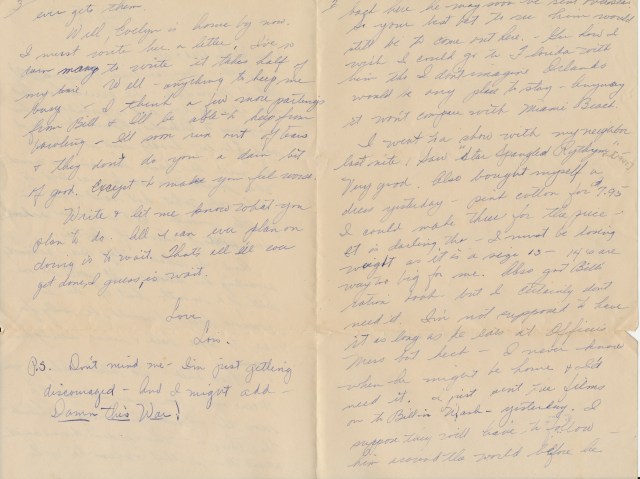 ever gets them.
Well, Evelyn is home by now.
I must write her a letter. I've
so many to write it takes half of
my time. Well - anything to keep me
busy. - I think a few more partings
from Bill & I'll be able to keep from
bawling - I'll soon run out of tears
& they don't do you a damn bit
of good. Except to make you feel worse.
Write & let me know what you
plan to do. All I can ever plan on
doing is to wait. That's all I'll ever
get done, I guess, is wait.
Love
Lou.
P.S. Don't mind me - I'm just getting
discouraged - And I might add -
Damn this War!
back here he may soon be sent overseas
So your best bet to see him would
still be to come out here. - Gee how I
wish I could go to Florida with
him tho I don't imagine Orlando
would be any place to stay - Anyway
it won't compare with Miami Beach.
I went to a show with my neighbor
last nite & saw "Star Spangled Rhythm"
Very good. Also bought myself a
dress yesterday - pink cotton for $7.95
I could make three for the price.
It is darling tho - I must be losing
weight as it is a size 13 - 14's are
way too big for me. Also got Bill's
ration book but I certainly don't
need it. I'm not supposed to have
it as long as he eats at Officers
Mess but heck - I never know
when he might be home & I'll
need it. I just sent two films
on to Bill in Wash - yesterday. I
suppose they will have to follow
him around the world before he